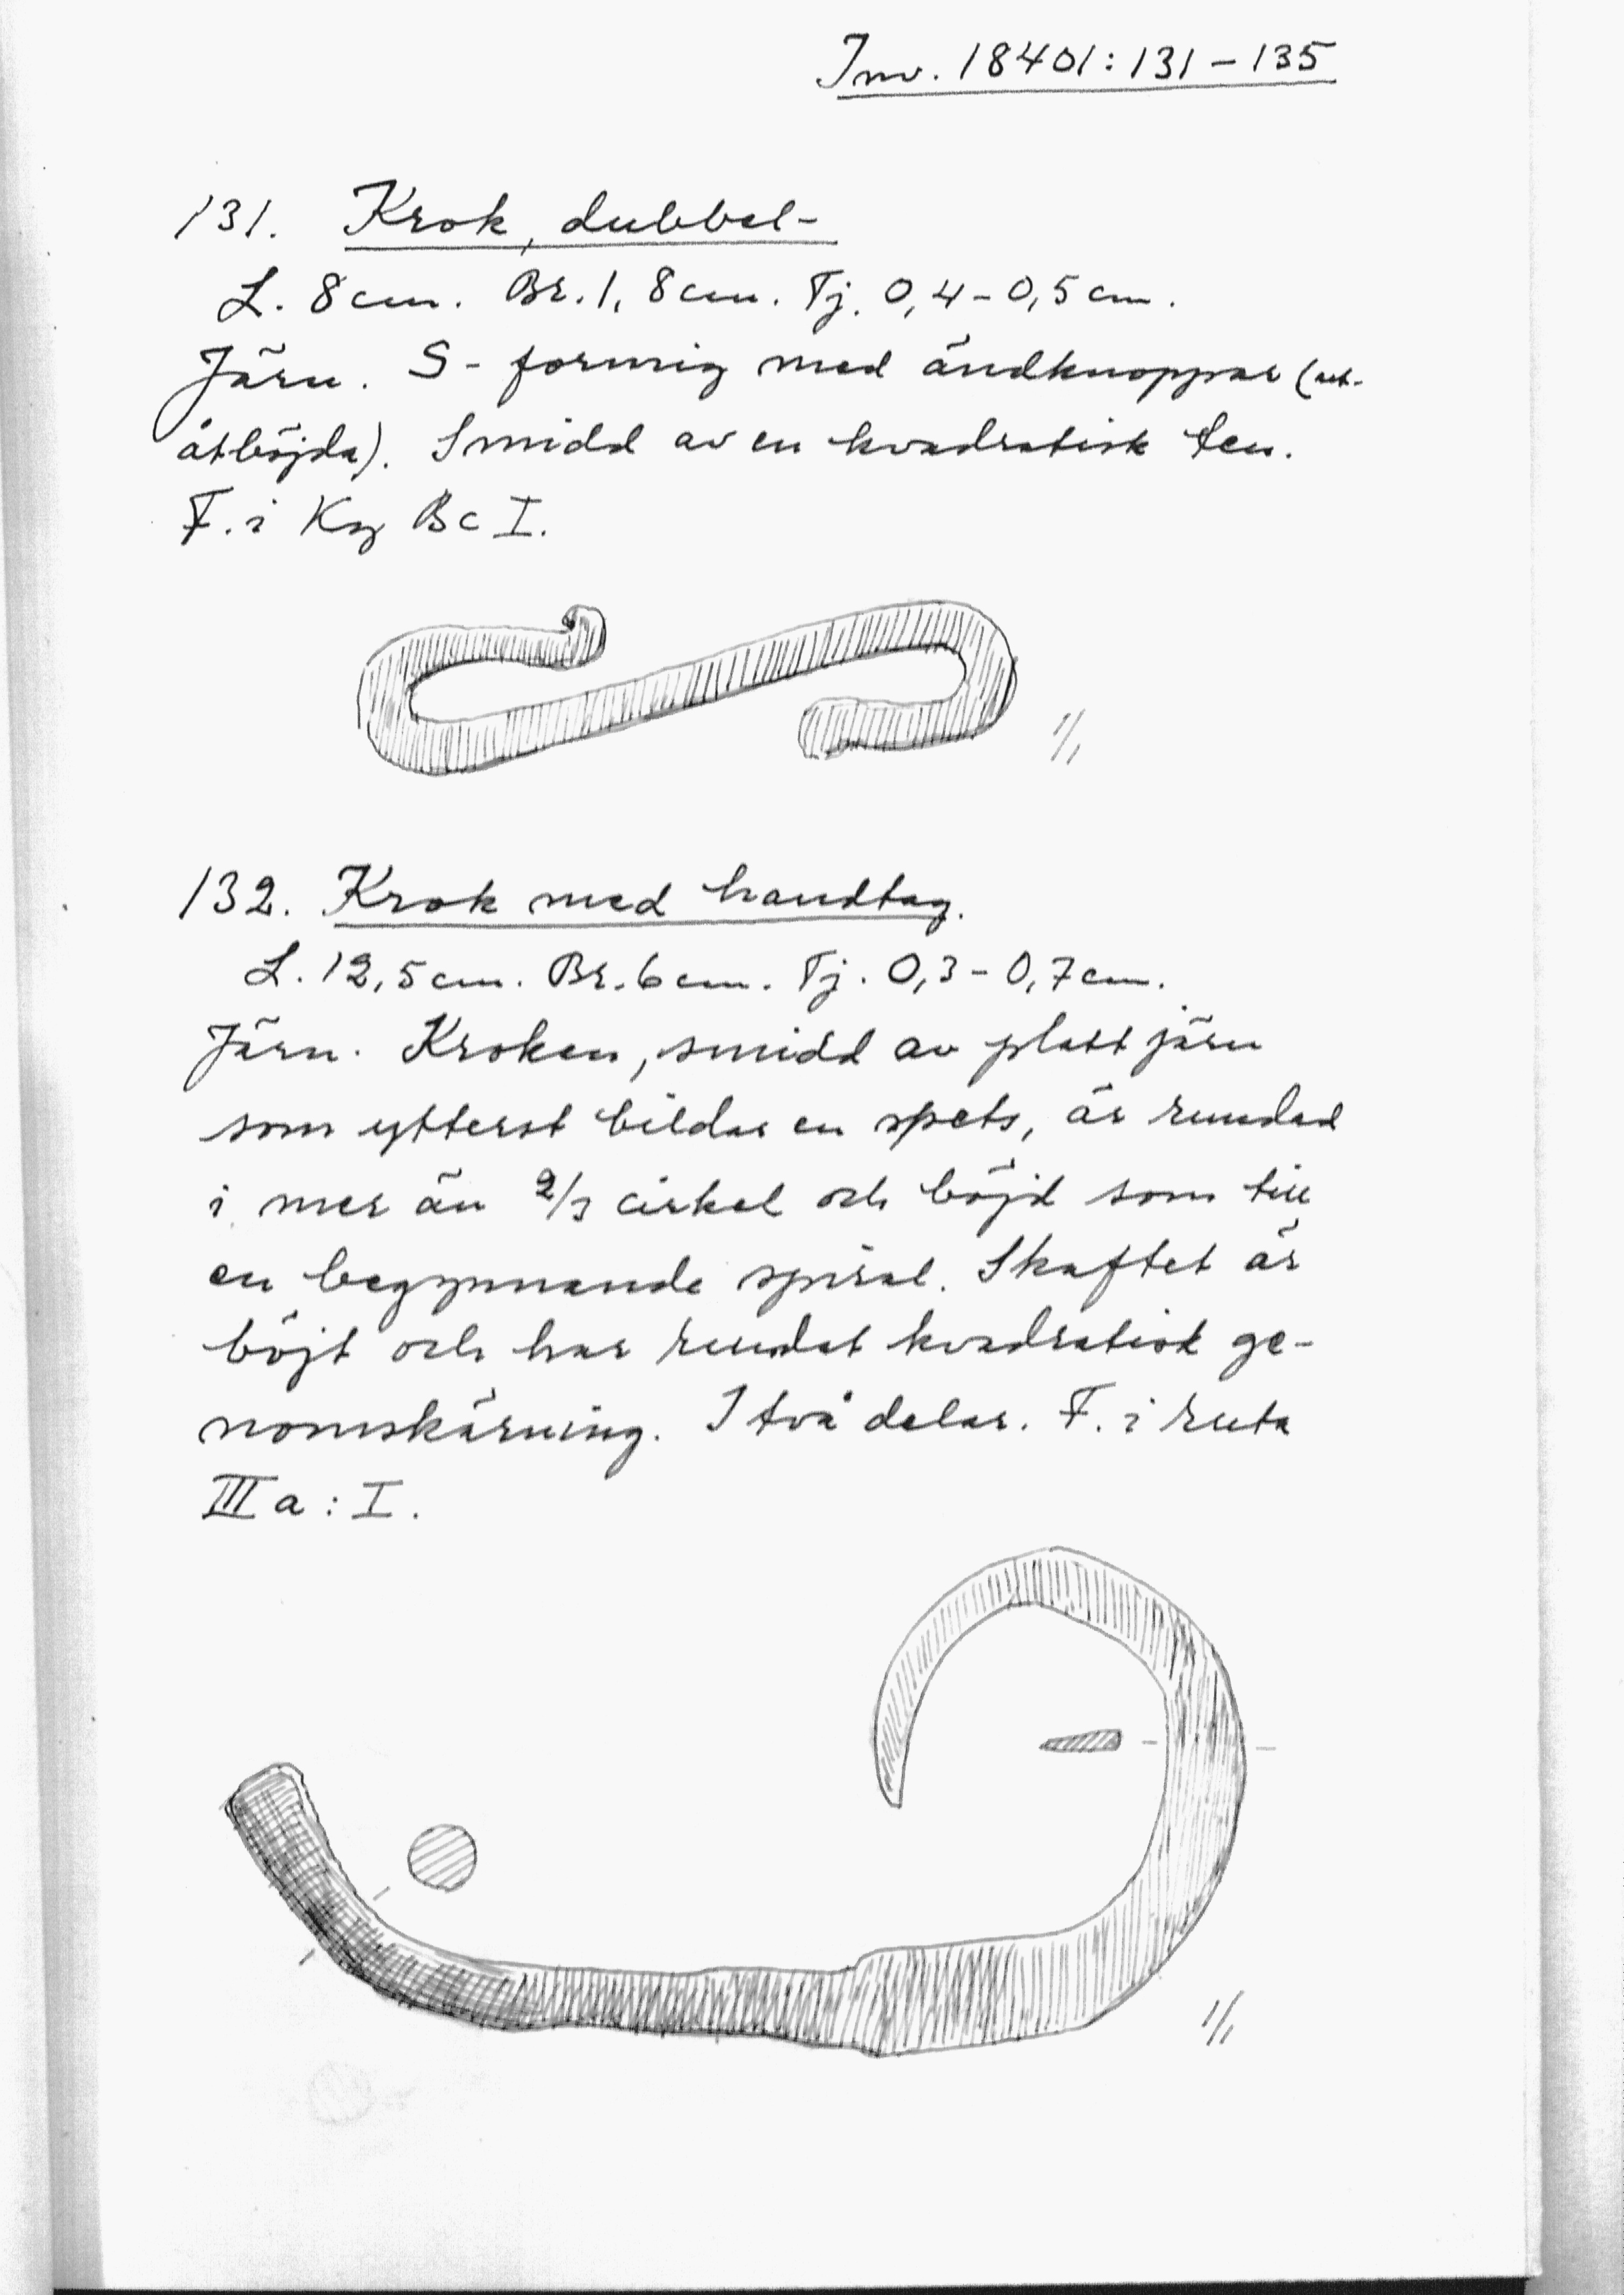 Inv. 18401:131-135
131. Krok, dubbel-
L. 8 cm. Br. 1,8 cm. Tj. 0,4-0,5 cm.
Järn. S-formig med ändknoppar (ut-
åtböjda). Smidd av en kvadratisk ten.
F. i Kg Bc I.
1/1
132. Krok med handtag.
L. 12,5 cm. Br. 6 cm. Tj. 0,3-0,7 cm.
Järn. Kroken, smidd av platt järn
som ytterst bildar en spets, är rundad
i mer än 2/3 cirkel och böjd som till
en begynnande spiral. Skaftet är
böjt och har rundat kvadratisk ge-
nomskärning. I två delar. F. i ruta
III a : I.
1/1